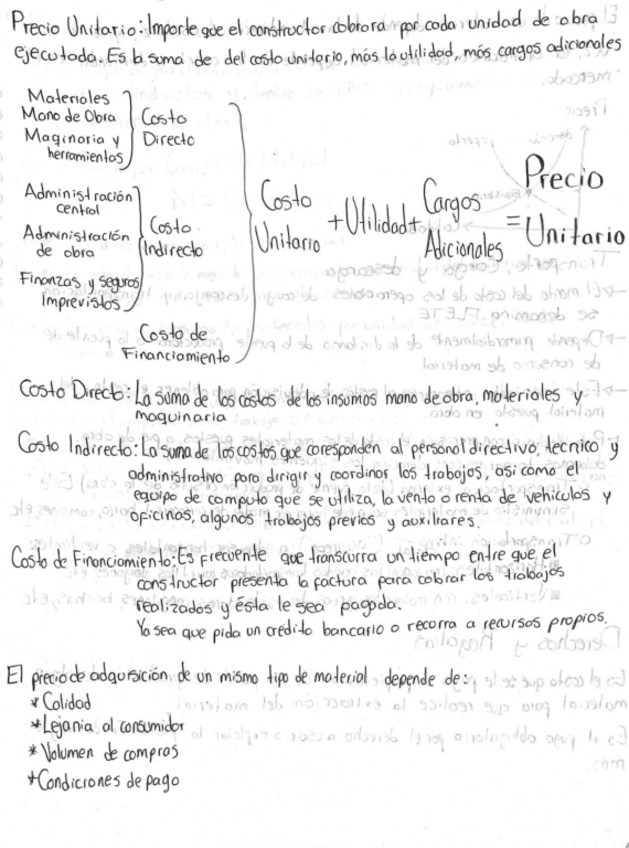 Precio Unitario: Importe que el constructor cobrara por cada unidad de obra
ejecutada. Es la suma de del costo unitario, más la utilidad, más cargos adicionales
Materiales
Mano de Obra
Maquinaria y
herramientas
Costo
Directo
Administración
central
Administración
de obra
Finanzas y seguros
Imprevistos
Costo
Indirecto
Costo de
Financiamiento
Costo
Unitario
+ Utilidad +
Cargos
Adicionales
=
Precio
Unitario
Costo Directo: La suma de los costos de los insumos mano de obra, materiales y
maquinaria
Costo Indirecto: La suma de los costos que coresponden al personal directivo, tecnico y
administrativo para dirigir y coordinar los trabajos, asi como el
equipo de computo que se utiliza, la venta o renta de vehiculos y
oficinas, algunos trabajos previos y auxiliares.
Costo de Financiamiento: Es frecuente que transcurra un tiempo entre que el
constructor presenta la factura para cobrar los trabajos
realizados y ésta le sea pagada.
Ya sea que pida un credito bancario o recorra a recursos propios.
El precio de adqursición de un mismo tipo de material depende de:
* Calidad
* Lejania al consumidor
* Volumen de compras
* Condiciones de pago